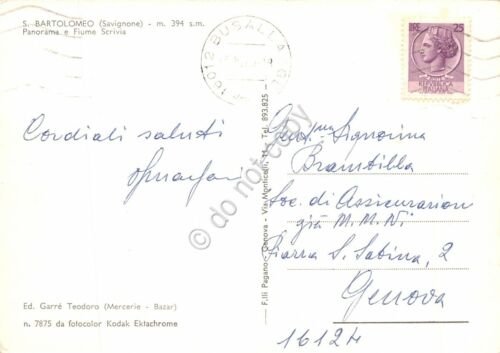 S. BARTOLOMEO (Savignone) - m. 394 s.m.
Panorama e Fiume Scrivia
16012 BUSALLA (GE)
LIRE 25
REPUBBLICA
ITALIANA
Cordiali saluti
Gent.ma Signorina
Brambilla
Soc. di Assicurazioni
già M.M.N.
Piazza S. Sabina, 2
Genova
16124
F.lli Pagano - Genova - Via Monticelli, 11 - Tel. 893.825
Ed. Garrè Teodoro (Mercerie - Bazar)
n. 7875 da fotocolor Kodak Ektachrome
© do not copy